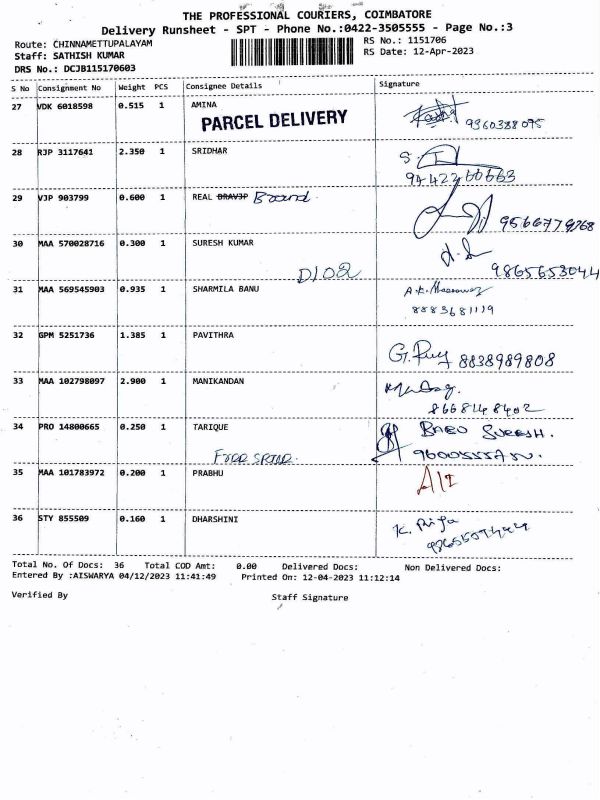 THE PROFESSIONAL COURIERS, COIMBATORE
Delivery Runsheet - SPT - Phone No.:0422-3505555 - Page No.:3
Route: CHINNAMETTUPALAYAM
RS No.: 1151706
Staff: SATHISH KUMAR
RS Date: 12-Apr-2023
DRS No.: DCJB115170603
S No Consignment No Weight PCS Consignee Details Signature
27 VDK 6018598 0.515 1 AMINA
PARCEL DELIVERY
9360388095
28 RJP 3117641 2.350 1 SRIDHAR
29 VJP 903799 0.600 1 REAL BRAVJP Board
9566779768
30 MAA 570028716 0.300 1 SURESH KUMAR
9865653044
31 MAA 569545903 0.935 1 SHARMILA BANU
8883681119
32 GPM 5251736 1.385 1 PAVITHRA
8838989808
33 MAA 102798097 2.900 1 MANIKANDAN
8668148402
34 PRO 14800665 0.250 1 TARIQUE
BABU SURESH.
35 MAA 101783972 0.200 1 PRABHU
36 STY 855509 0.160 1 DHARSHINI
Total No. Of Docs: 36 Total COD Amt: 0.00 Delivered Docs: Non Delivered Docs:
Entered By :AISWARYA 04/12/2023 11:41:49 Printed On: 12-04-2023 11:12:14
Verified By Staff Signature